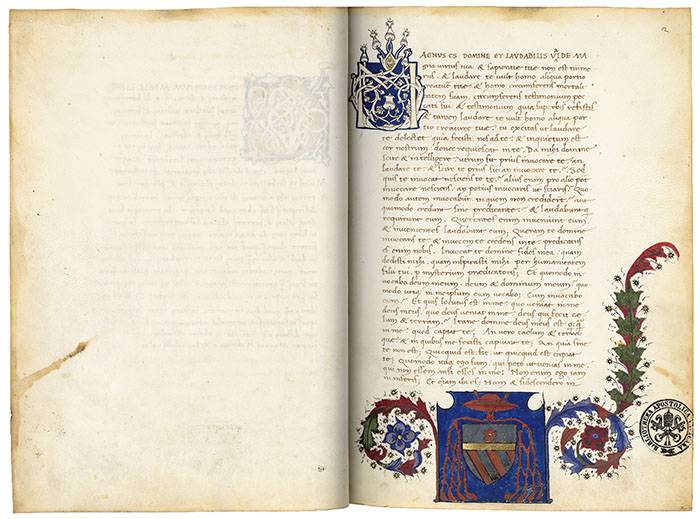 2
MAGNUS ES DOMINE ET LAUDABILIS VALDE MA
gna virtus tua & sapientie tue non est nume
rus. & laudare te vult homo aliqua portio
creature tue & homo circumferens mortali
tatem suam, circumferens testimonium pec
cati sui & testimonium quia superbis resistis
& tamen laudare te vult homo aliqua por
tio creature tue. tu excitas ut laudare
te delectet quia fecisti nos ad te & inquietum est
cor nostrum donec requiescat in te. Da mihi domine
scire & intelligere utrum sit prius invocare te an
laudare te & scire te prius sit an invocare te. Sed
quis te invocat nesciens te? aliud enim pro alio pot
invocare nesciens. an potius invocaris ut sciaris? Quo
modo autem invocabunt in quem non crediderunt? aut
quomodo credunt sine predicante & laudabunt
requirunt eum. Querentes enim invenient eum
& invenientes laudabunt eum. Queram te domine
invocans te & invocem te credens in te. predicatus
es enim nobis. Invocat te domine fides mea quam
dedisti mihi quam inspirasti mihi per humanitatem
filii tui, per mysterium predicatoris. Et quomodo in
vocabo deum meum deum & dominum meum quo
modo utique in me ipsum eum vocabo cum invocabo
eum? Et quis locus est in me quo veniat in me
deus meus quo deus veniat in me deus qui fecit ce
lum & terram? Itane domine deus meus est quicquam
in me quod capiat te? An vero caelum & terra
que & in quibus me fecisti capiunt te? An quia sine
te non est quicquid est fit ut quicquid est capiat
te? Quomodo ego sum quid peto ut venias in me
qui non essem nisi esses in me? Non enim ego iam
in inferis & etiam ibi es. Nam & si descendero in
BIBLIOTHECA APOSTOLICA VATICANA